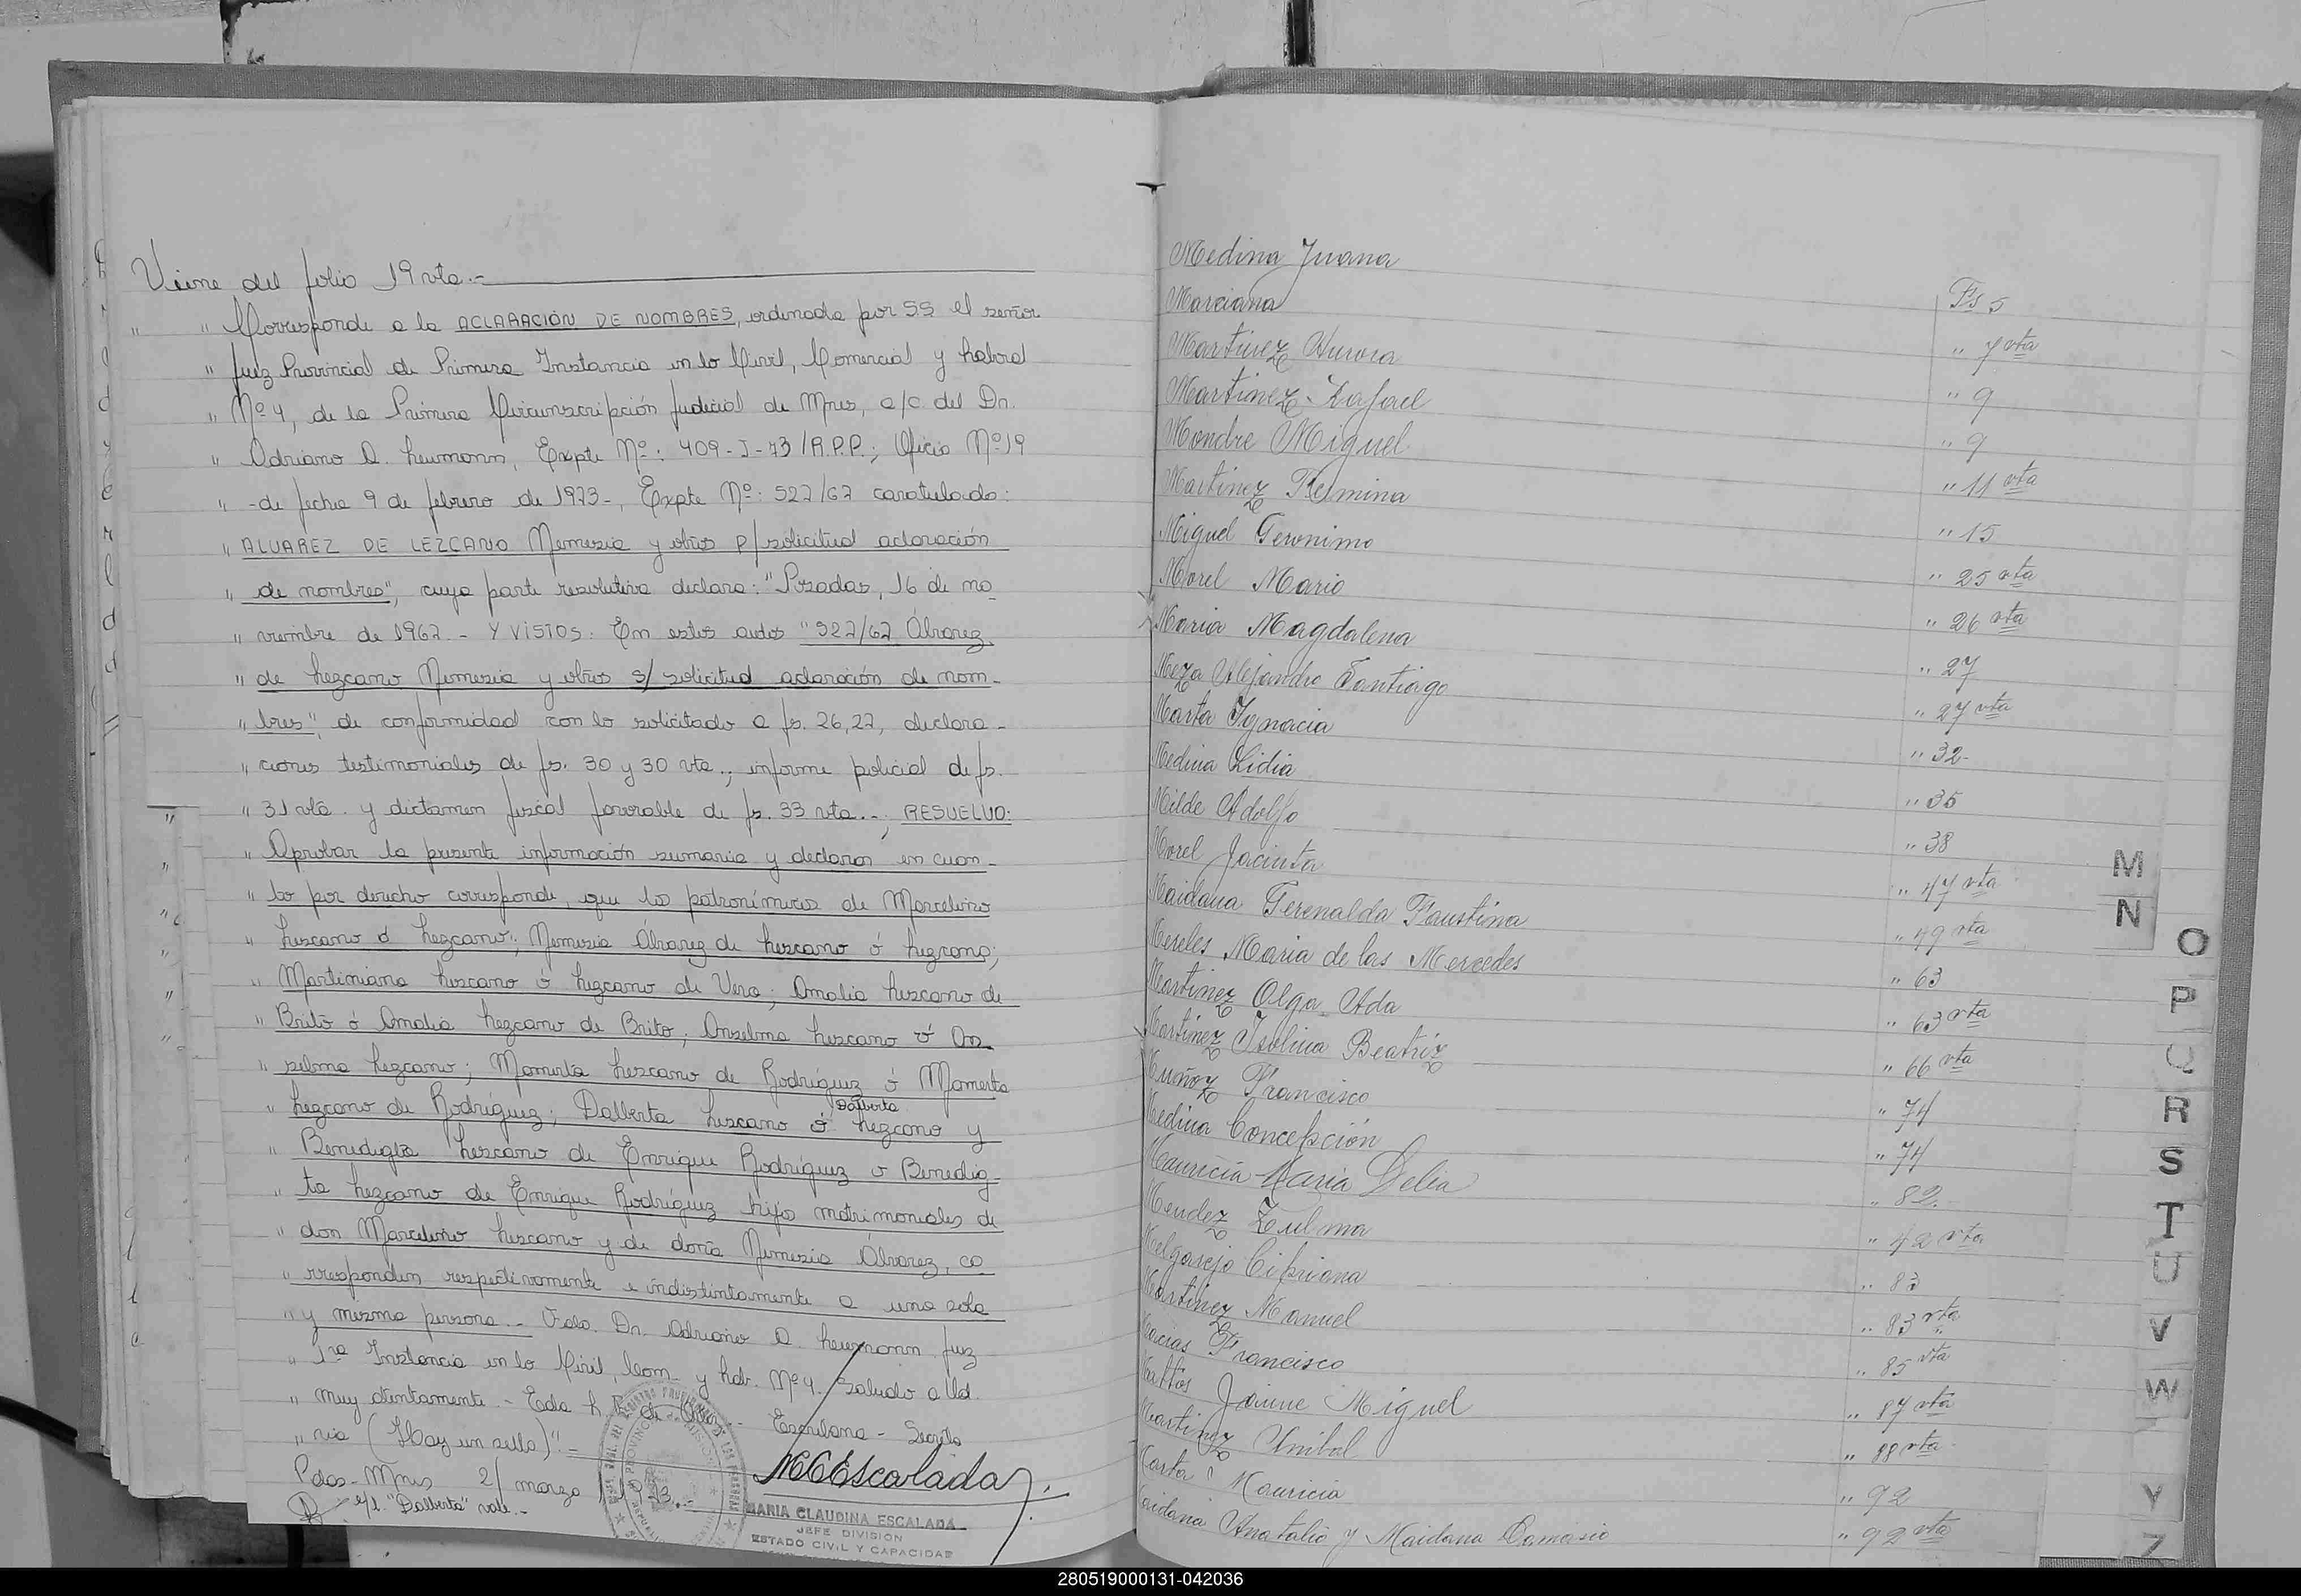 Viene del folio 19 vta.-
" " Corresponde a la ACLARACIÓN DE NOMBRES, ordenada por S.S el señor
" Juez Provincial de Primera Instancia en lo Civil, Comercial y Laboral
" Nº 4, de la Primera Circunscripción Judicial de Mnes, a/c. del Dr.
" Adriano A. Leumann, Expte Nº: 409-J-73/R.P.P.; Oficio Nº 19
" -de fecha 9 de febrero de 1973-, Expte Nº: 527/67 caratulado:
" ALVAREZ DE LEZCANO Nemesia y otros p/solicitud aclaración
" de nombres", cuya parte resolutiva declara: "Posadas, 16 de no-
" viembre de 1967.- Y VISTOS: En estos autos "527/67 Álvarez
" de Lezcano Nemesia y otros s/ solicitud aclaración de nom-
" bres", de conformidad con lo solicitado a fs. 26,27, declara-
" ciones testimoniales de fs. 30 y 30 vta., informe policial de fs.
" 31 vta. y dictamen fiscal favorable de fs. 33 vta.-; RESUELVO:
" Aprobar la presente información sumaria y declarar en cuan-
" to por derecho corresponde, que los patronímicos de Marcelino
" Lescano ó Lezcano; Nemesia Álvarez de Lescano ó Lezcano;
" Martiniana Lescano ó Lezcano de Vera; Amalia Lescano de
" Brito ó Amalia Lezcano de Brito; Anselma Lescano ó An-
" selma Lezcano; Mamerta Lescano de Rodríguez ó Mamerta
" Lezcano de Rodríguez; Dalberta Lescano ó Dalberta Lezcano y
" Benedigta Lescano de Enrique Rodríguez o Benedig-
" ta Lezcano de Enrique Rodríguez hijos matrimoniales de
" don Marcelino Lescano y de doña Nemesia Álvarez, co-
" rresponden respectivamente e indistintamente a una sola
" y misma persona.- Fdo. Dr. Adriano A. Leumann Juez
" 1ra Instancia en lo Civil, Com. y Lab. Nº 4. Saludo a Ud.
" muy atentamente.- Eda L. R. de - Escribana - Secreta
" ria (Hay un sello)"=
Pdas-Mnes 21 marzo 1973.-
e/l. "Dalberta" vale.-
MCEscalada
MARIA CLAUDINA ESCALADA
JEFE DIVISION
ESTADO CIVIL Y CAPACIDAD
Medina Juana
Marciana Fs 5
Martinez Aurora " 7 vta
Martinez Rafael " 9
Mondre Miguel " 9
Martinez Fermina " 11 vta
Miguel Geronimo " 15
Morel Mario " 25 vta
Maria Magdalena " 26 vta
Meza Alejandro Santiago " 27
Marta Ignacia " 27 vta
Medina Lidia " 32-
Milde Adolfo " 35
Morel Jacinta " 38
Maidana Gerenalda Faustina " 47 vta
Mereles Maria de las Mercedes " 49 vta
Martinez Olga Ada " 63
Martinez Isolina Beatriz " 63 vta
Muñoz Francisco " 66 vta
Medina Concepción " 74
Mauricia Maria Delia " 74
Mendez Zulma " 82.
Melgarejo Cipriana " 42 vta
Martinez Manuel " 83
Macias Francisco " 83 vta
Mattos Jaime Miguel " 85 vta
Martinez Anibal " 87 vta
Marta Mauricia " 88 vta
Maidana Anatalio y Maidana Damasio " 92
" 92 vta
M
N
O
P
Q
R
S
T
U
V
W
Y
Z
280519000131-042036